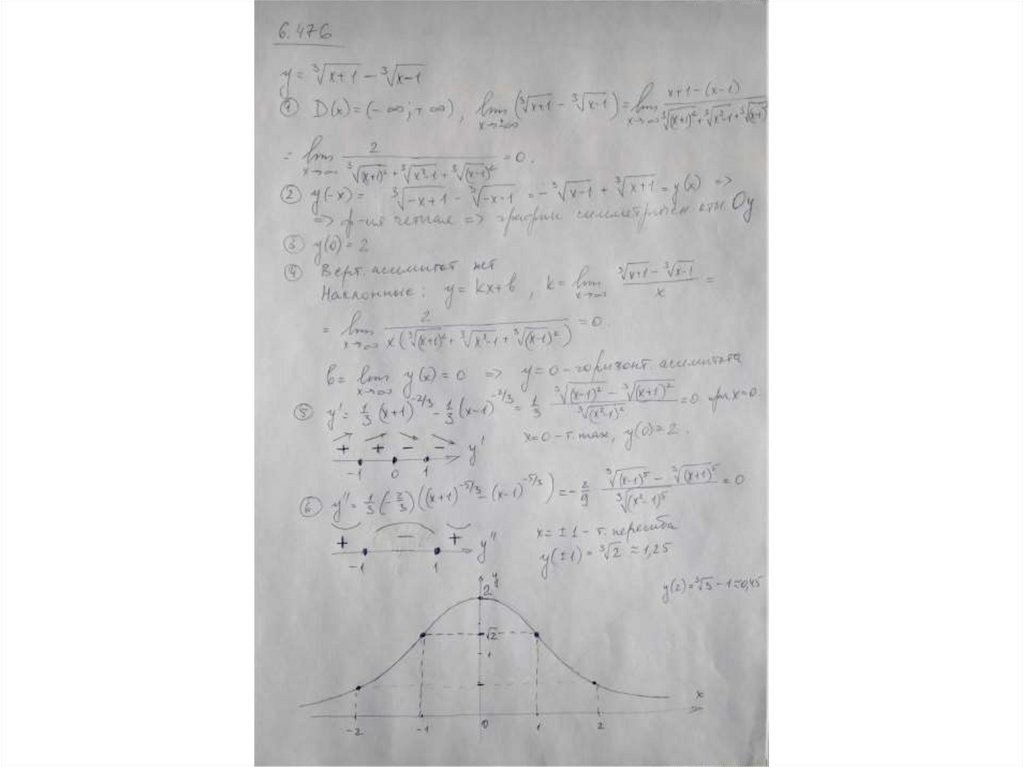 6.476
y = ∛(x+1) − ∛(x−1)
① D(x) = (−∞; +∞), lim x→±∞ (∛(x+1) − ∛(x−1)) = lim x→∞ (x+1−(x−1)) / (∛(x+1)² + ∛(x²−1) + ∛(x−1)²)
= lim x→∞ 2 / (∛(x+1)² + ∛(x²−1) + ∛(x−1)²) = 0.
② y(−x) = ∛(−x+1) − ∛(−x−1) = −∛(x−1) + ∛(x+1) = y(x) ⇒
⇒ ф-ия четная ⇒ график симметричен отн. Oy
③ y(0) = 2
④ Верт. асимптот нет
Наклонные: y = kx+b, k = lim x→∞ (∛(x+1) − ∛(x−1)) / x =
= lim x→∞ 2 / (x(∛(x+1)² + ∛(x²−1) + ∛(x−1)²)) = 0.
b = lim x→∞ y(x) = 0 ⇒ y = 0 – горизонт. асимптота
⑤ y' = 1/3 (x+1)^(−2/3) − 1/3 (x−1)^(−2/3) = 1/3 (∛(x−1)² − ∛(x+1)²) / ∛(x²−1)² = 0 при x=0
x=0 – т. max, y(0)=2.
+ + − − y'
−1 0 1
⑥ y'' = 1/3 (−2/3) ((x+1)^(−5/3) − (x−1)^(−5/3)) = −2/9 (∛(x−1)⁵ − ∛(x+1)⁵) / ∛(x²−1)⁵ = 0
+ − + y''
−1 1
x = ±1 – т. перегиба
y(±1) = ∛2 ≈ 1,25
y(2) = ∛3 − 1 ≈ 0,45
2 y
∛2
1
x
−2 −1 0 1 2